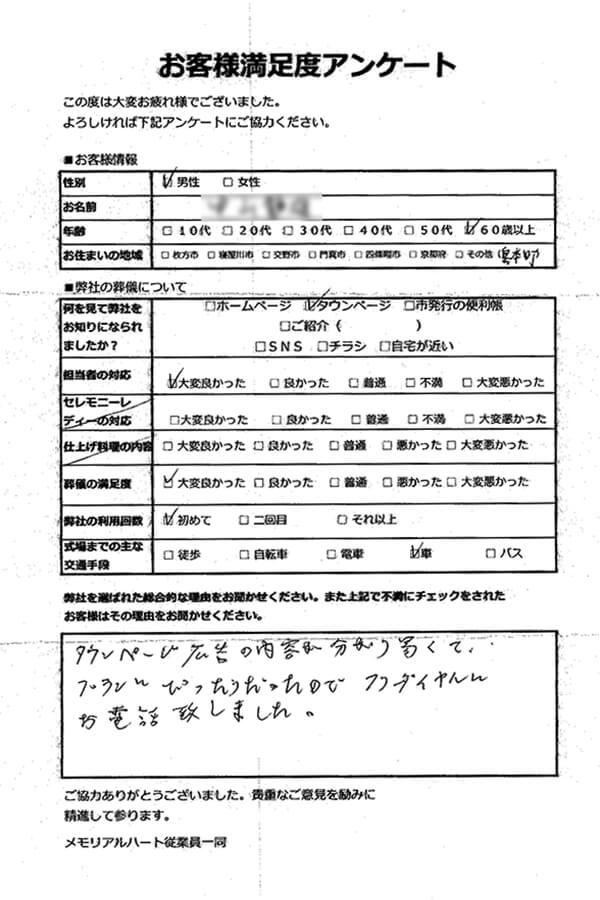 お客様満足度アンケート
この度は大変お疲れ様でございました。
よろしければ下記アンケートにご協力ください。
■お客様情報
性別 ☑男性 □女性
お名前
年齢 □10代 □20代 □30代 □40代 □50代 ☑60歳以上
お住まいの地域 □枚方市 □寝屋川市 □交野市 □門真市 □四條畷市 □京都府 □その他 島本町
■弊社の葬儀について
何を見て弊社を
お知りになられ
ましたか？
□ホームページ ☑タウンページ □市発行の便利帳
□ご紹介（ ）
□SNS □チラシ □自宅が近い
担当者の対応 ☑大変良かった □良かった □普通 □不満 □大変悪かった
セレモニーレ
ディーの対応 □大変良かった □良かった □普通 □不満 □大変悪かった
仕上げ料理の内容 □大変良かった □良かった □普通 □悪かった □大変悪かった
葬儀の満足度 ☑大変良かった □良かった □普通 □悪かった □大変悪かった
弊社の利用回数 ☑初めて □二回目 □それ以上
式場までの主な
交通手段 □徒歩 □自転車 □電車 ☑車 □バス
弊社を選ばれた総合的な理由をお聞かせください。また上記で不満にチェックをされた
お客様はその理由をお聞かせください。
タウンページ広告の内容が分かり易くて、
プランにぴったりだったので フリーダイヤルに
お電話致しました。
ご協力ありがとうございました。貴重なご意見を励みに
精進して参ります。
メモリアルハート従業員一同